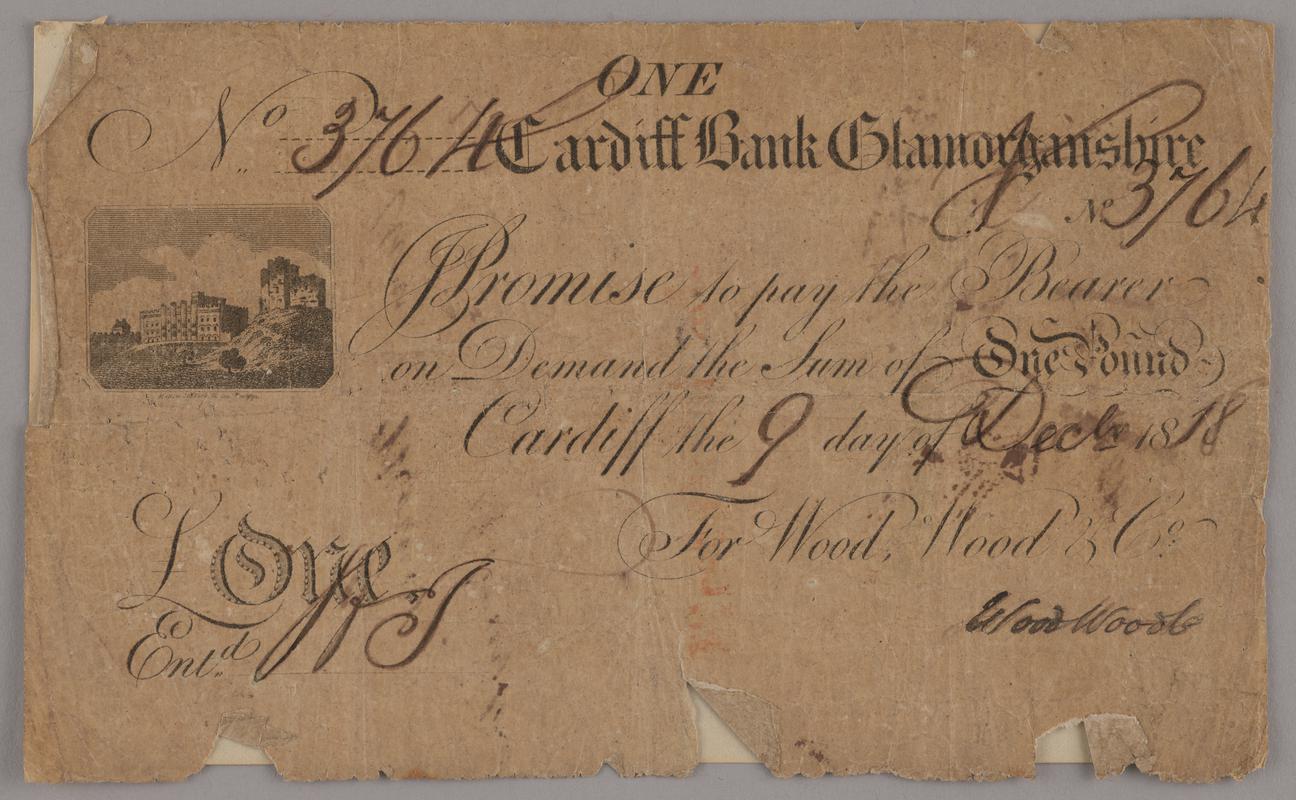 ONE
No 3764 Cardiff Bank Glamorganshire
No 3764
I Promise to pay the Bearer
on Demand the Sum of One Pound
Cardiff the 9 day of Decr 1818
For Wood, Wood & Co.
£ One
Entd.
Wood Wood